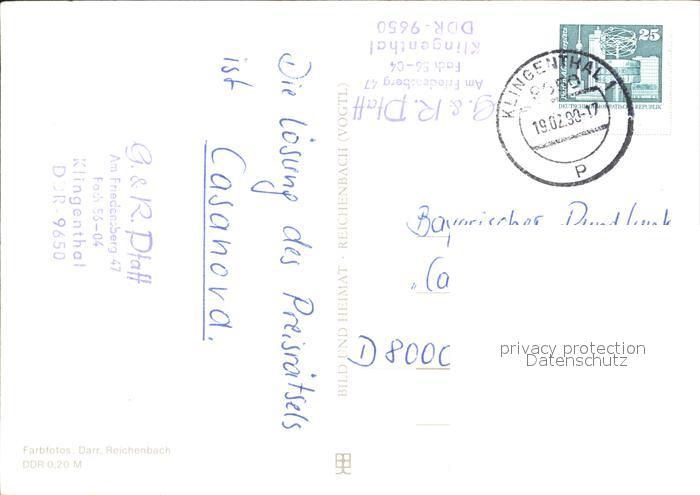 Die Lösung des Preisrätsels
ist Casanova.
G. & R. Pfaff
Am Friedensberg 47
Fach 56-04
Klingenthal
DDR-9650
G. & R. Pfaff
Am Friedensberg 47
Fach 56-04
Klingenthal
DDR-9650
BILD UND HEIMAT · REICHENBACH (VOGTL)
25
DEUTSCHE DEMOKRATISCHE REPUBLIK
KLINGENTHAL 1
9650
19.02.90-17
P
Bayerischer Rundfunk
„Ca
D 8000
privacy protection
Datenschutz
Farbfotos: Darr, Reichenbach
DDR 0,20 M